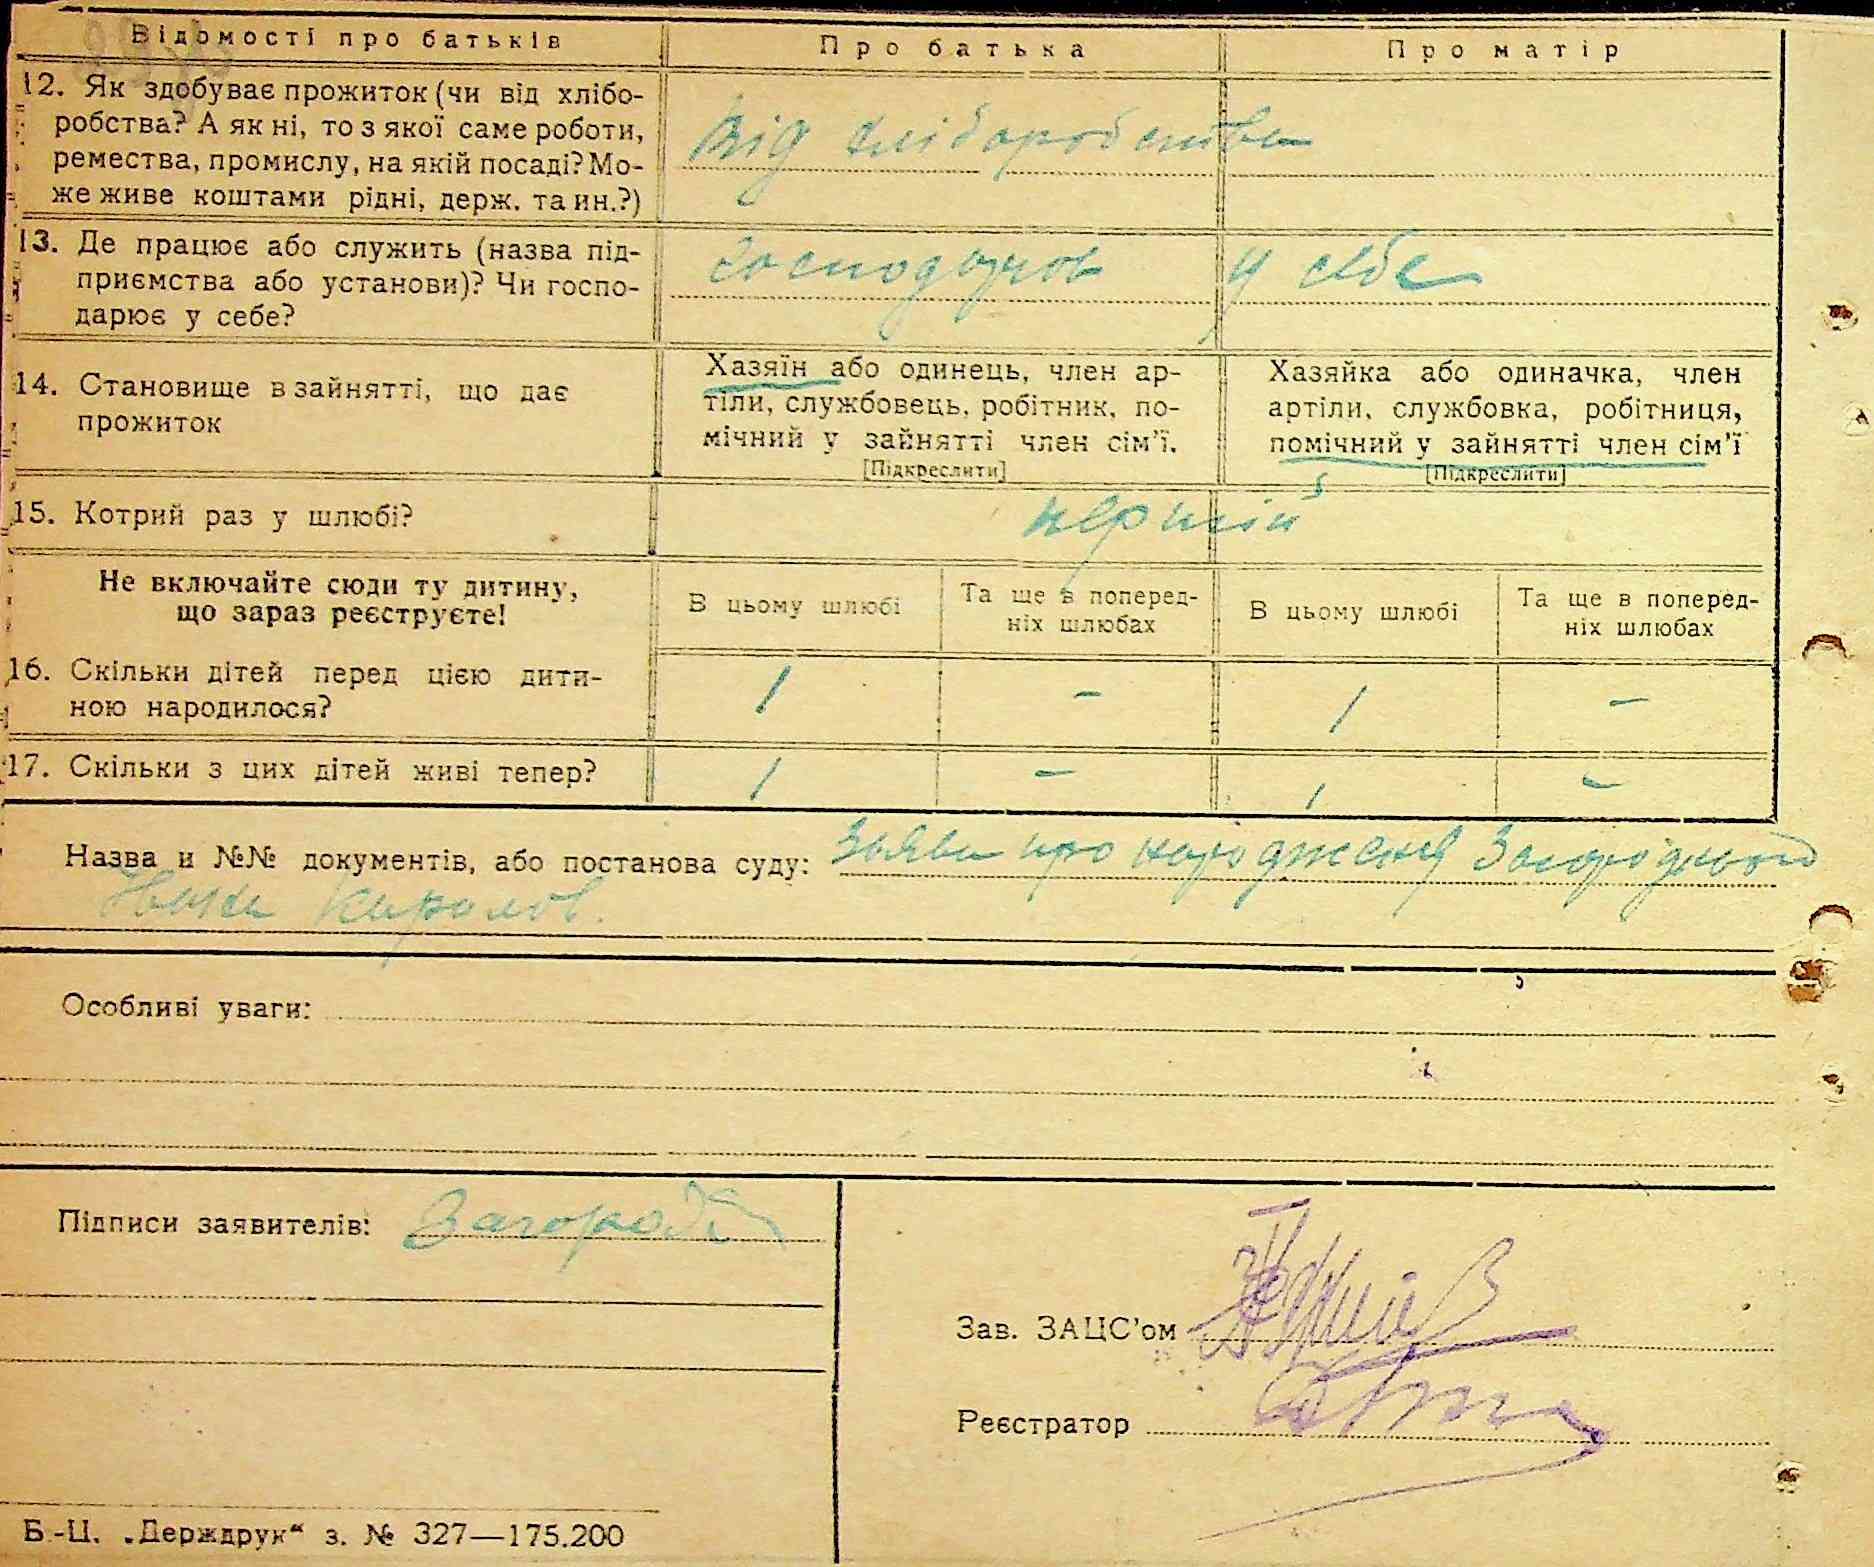 Відомості про батьків
Про батька
Про матір
12. Як здобуває прожиток (чи від хлібо-
робства? А як ні, то з якої саме роботи,
ремества, промислу, на якій посаді? Мо-
же живе коштами рідні, держ. та ин.?)
Від хліборобства
13. Де працює або служить (назва під-
приємства або установи)? Чи госпо-
дарює у себе?
у себе
14. Становище в зайнятті, що дає
прожиток
Хазяїн або одинець, член ар-
тіли, службовець, робітник, по-
мічний у зайнятті член сім'ї.
[Підкреслити]
Хазяйка або одиначка, член
артіли, службовка, робітниця,
помічний у зайнятті член сім'ї
[Підкреслити]
15. Котрий раз у шлюбі?
перший
Не включайте сюди ту дитину,
що зараз реєструєте!
В цьому шлюбі
Та ще в поперед-
ніх шлюбах
В цьому шлюбі
Та ще в поперед-
ніх шлюбах
16. Скільки дітей перед цією дити-
ною народилося?
1 - 1 -
17. Скільки з цих дітей живі тепер?
1 - 1 -
Назва и №№ документів, або постанова суду: Заява про народження
Особливі уваги:
Підписи заявителів:
Зав. ЗАЦС'ом
Реєстратор
Б.-Ц. „Держдрук“ з. № 327—175.200